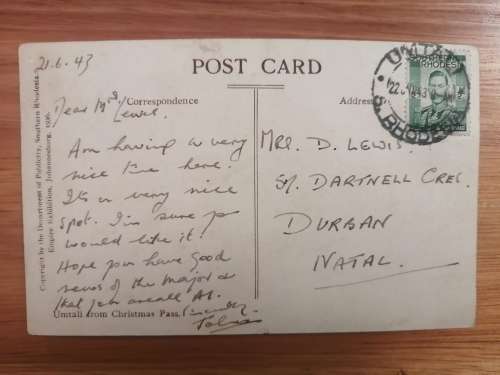 21.6.43
POST CARD
Correspondence
Address
Dear Mrs
Lewis.
Am having a very
nice time here.
It's a very nice
spot. I'm sure you
would like it.
Hope you have good
news of the Major &
that you are all
Umtali from Christmas Pass.
Copyright by the Department of Publicity, Southern Rhodesia.
Empire Exhibition, Johannesburg, 1936.
MRS. D. LEWIS.
DARTNELL CRES.
DURBAN
NATAL.
SOUTHERN
RHODESIA
UMTALI
S. RHODESIA